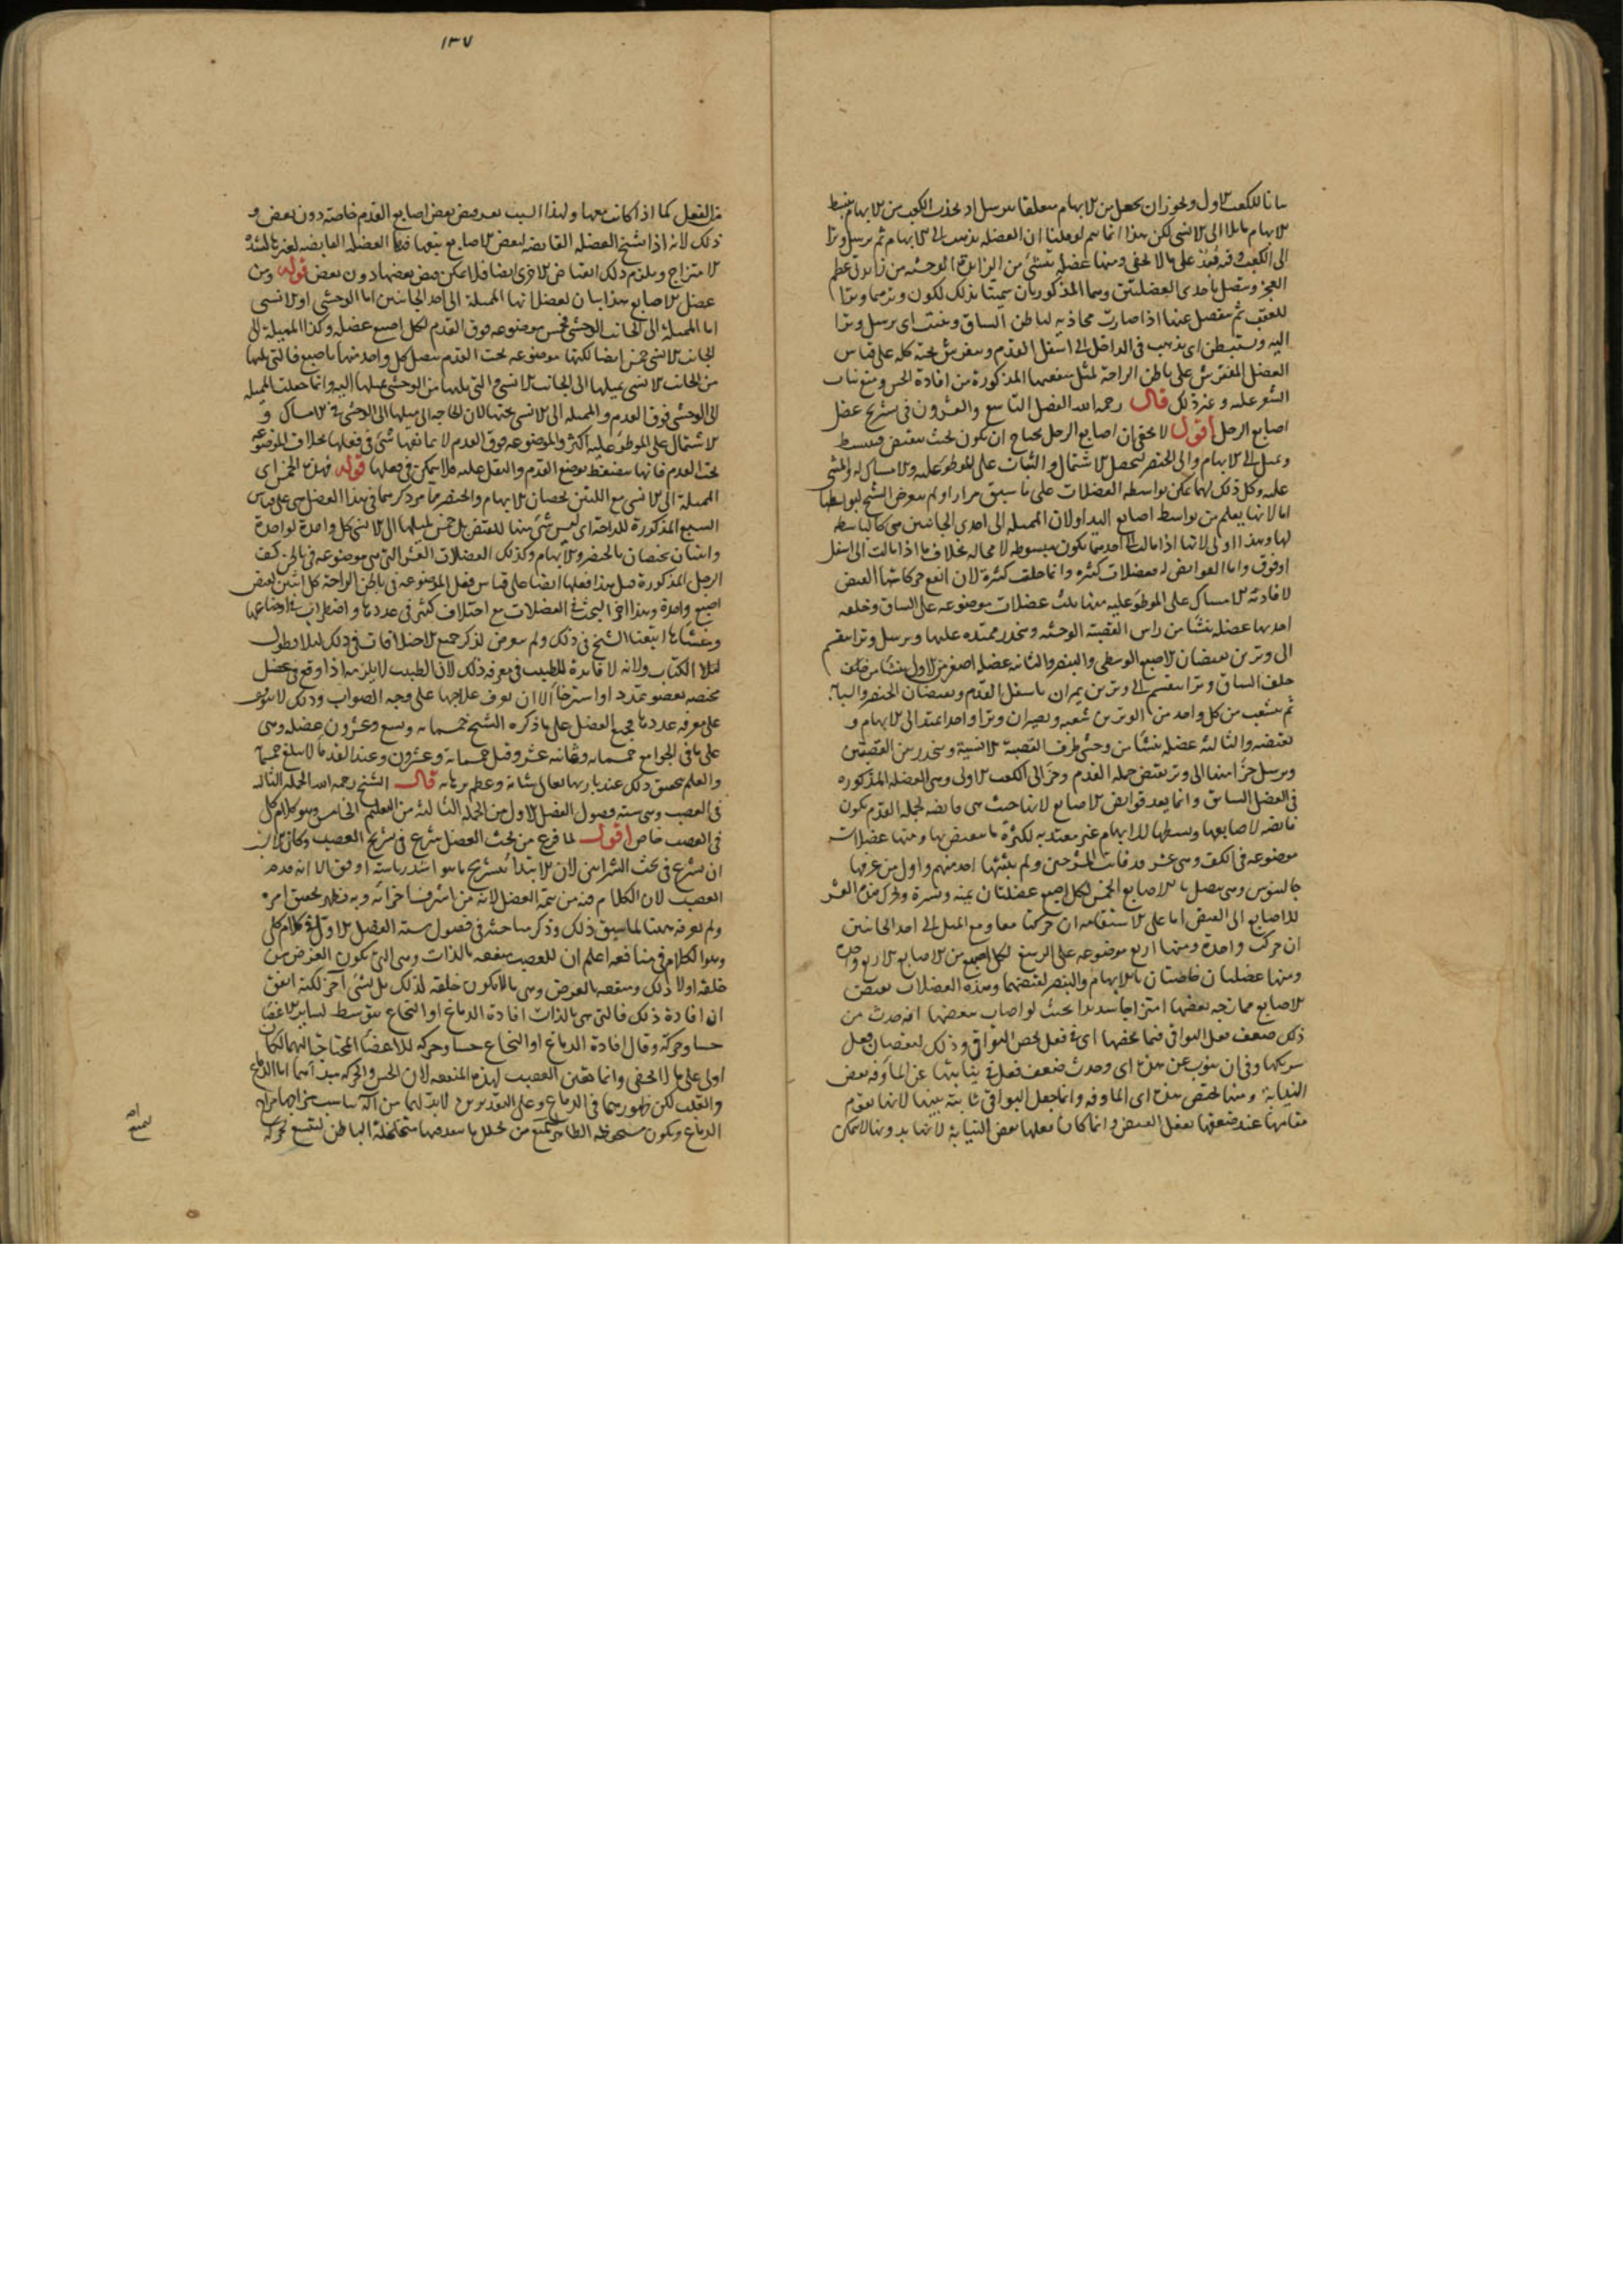 لاول ويجوز ان يجعل من الابهام متعلقا
الابهام مايلا الى الانسى لكن هذا انما يتم لو قلنا ان العضلة تذهب الى الابهام ثم ترسل وترا
الى الكعب وفيه بعد على ما لا يخفى ومنها عضلة تنشئ من الزايدة الوحشية من زايدتى عظم
الفخذ وتتصل باحدى العضلتين وهما المذكورتان
للعقب ثم تنفصل عنها اذا صارت محاذية لباطن الساق وتنبت اى ترسل وترا
اليه وتستبطن اى تذهب فى الداخل الى اسفل القدم وتنفرش تحته كله على قياس
العضل المنفرش على باطن الراحة لمثل منفعتها المذكورة من افادة الحس ومنع نبات
الشعر عليه وغير ذلك قال رحمه الله الفصل التاسع والعشرون فى تشريح عضل
اصابع الرجل اقول لا يخفى ان اصابع الرجل يحتاج ان تكون بحيث تنقبض وتنبسط
وتميل الى الابهام والى الخنصر ليحصل الاشتمال والثبات على الموطوء عليه والامساك له والمشى
عليه وكل ذلك انما يمكن بواسطة العضلات على ما سبق مرارا ولم يتعرض الشيخ لبواسطها
اما لانها يعلم من بواسط اصابع اليد او لان المميلة الى احدى الجانبين هى كالباسطة
لها وهذا اولى لانها اذا مالت الى احدهما تكون مبسوطة لا محالة بخلاف ما اذا مالت الى اسفل
او فوق واما القوابض له فعضلات كثيرة وانما خلقت كثيرة لان انفع حركاتها القبض
لافادته الامساك على الموطوء عليه منها ثلث عضلات موضوعة على الساق وخلفه
احدها عضلة تنشا من راس القصبة الوحشية وتنحدر ممتدة عليها وترسل وترا ينقسم
الى وترين يقبضان الاصبع الوسطى والبنصر والثانية عضلة اصغر من الاول تنشا من خلف
خلف الساق وترا ينقسم الى وترين يمران باسفل القدم ويقبضان الخنصر والسبابة
ثم يتشعب من كل واحد من الوترين شعبة ويصيران وترا واحدا يمتد الى الابهام و
يقبضه والثالثة عضلة تنشا من وحشى طرف القصبة الانسية وتنحدر بين القصبتين
وترسل جزءا منها الى وتر يقبض جملة القدم وجزءا الى الكعب الاولى وهى العضلة المذكورة
فى الفصل السابق وانما يعد قوابض الاصابع لانها حيث هى قابضة لجملة القدم تكون
قابضة لاصابعها
موضوعة فى الكف وهى عشر قد فاتت المشرحين ولم يتنبه لها احد منهم واول من عرفها
جالينوس وهى تتصل بالاصابع الخمس لكل اصبع عضلتان يمنة ويسرة وتحرك هذه العشر
للاصابع الى القبض اما على الاستقامة ان حركتا معا ومع الميل الى احد الجانبين
ان حركت واحدة ومنها اربع موضوعة على الرسغ لكل اصبع من الاصابع الاربع واحدة
ومنها عضلتان خاصتان بالابهام والبنصر لقبضهما وهذه العضلات يقبض
الاصابع ممازجة بعضها امتزاجا شديدا بحيث لو اصاب بعضها افة حدث من
ذلك ضعف فعل البواقى فيما يخصها اى فى فعل يخص البواقى وذلك لنقصان فعل
شريكها وفى ان ينوب عن هذه اى وحدث ضعف فعل فى نيابتها عن المأوفة بعض
النيابة ومنها لتختص بهذه اى الماوفة وانما جعل البواقى ثابتة عنها لانها تقوم
مقامها عند ضعفها بفعل القبض وانما كان فعلها بعض النيابة لانها بدونها لا يمكن
١٣٧
من الفعل كما اذا كانت معها ولهذا السبب يعسر قبض بعض اصابع القدم خاصة دون بعض و
ذلك لانه اذا تشنج العضلة القابضة لبعض الاصابع يتبعها فيها العضلة القابضة لغيرها لشدة
الامتزاج ويلزم ذلك انقباض الاخرى ايضا فلا يمكن قبض بعضها دون بعض قوله ومن
عضل الاصابع هذا بيان لعضلاتها المميلة الى احد الجانبين اما الوحشى او الانسى
اما المميلة الى الجانب الوحشى فخمس موضوعة فوق القدم لكل اصبع عضلة وكذا المميلة الى
الجانب الانسى خمس ايضا لكنها موضوعة تحت القدم يتصل كل واحد منها باصبع فالتى تليها
من الجانب الانسى يميلها الى الجانب الانسى والتى تليها من الوحشى يميلها اليه وانما جعلت المميلة
الى الوحشى فوق القدم والمميلة الى الانسى تحتها لان الحاجة الى ميلها الى الوحشى فى الامساك و
الاشتمال على الموطوء عليه اكثر والموضوعة فوق القدم لا يمانعها شئ فى فعلها بخلاف الموضوعة
تحت القدم فانها تنضغط بوضع القدم والثقل عليه فلا يتمكن فى فعلها قوله فهذه الخمس اى
المميلة الى الانسى مع اللتين تخصان الابهام والخنصر مما مر ذكرهما فى هذا الفصل هى على قياس
السبع المذكورة للراحة اى ليس شئ منها للقبض بل خمس لميلها الى الانسى كل واحدة لواحدة
واثنتان تختصان بالخنصر والابهام وكذلك العضلات العشر التى هى موضوعة فى
الرجل المذكورة قبل هذا فعلها ايضا على قياس فعل الموضوعة فى باطن الراحة كل اثنتين يقبض
اصبع واحدة وهذا اخر البحث فى العضلات مع اختلاف كثير فى عددها واضطراب فى اوضاعها
ومنشاها اتبعنا الشيخ فى ذلك ولم نتعرض لذكر جميع الاختلافات فى ذلك لئلا يطول
الكتاب ولانه لا فائدة للطبيب فى معرفة ذلك لان الطبيب لا يلزمه اذا وقع فى عضل
مختصة بعضو تمدد او استرخا الا ان يعرف علاجها على وجه الصواب وذلك لا يتوقف
على معرفة عددها فجميع العضل على ما ذكره الشيخ خمسمائة وتسع وعشرون عضلة وهى
على ما فى الجوامع خمسمائة وثمانية عشر وقيل خمسمائة وعشرون وعند القدما لا يبلغ خمسمائة
والعلم بتحقيق ذلك عند باريها تعالى شانه وعظم برهانه قال الشيخ رحمه الله الجملة الثالثة
فى العصب وهى ستة فصول الفصل الاول من الجملة الثالثة من التعليم الخامس وهو كلام كلى
فى العصب خاص اقول لما فرغ من بحث العضل شرع فى تشريح العصب وكان الاولى
ان يشرع فى بحث الشرايين لان الابتدا بتشريح ما هو اشد رياسة اوفق الا انه قدم
العصب لان الكلام فيه من تتمة العضل لانه من اشرف اجزائه وبه يظهر تحقيق امره
ولم يعرفه ههنا لما سبق ذلك وذكر مباحثه فى فصول ستة الفصل الاول فى كلام كلى
وهو الكلام فى منافعه اعلم ان للعصب منفعة بالذات وهى التى تكون الغرض من
خلقه اولا ذلك ومنفعة بالعرض وهى ما لا يكون خلقه لذلك بل لشئ آخر لكنه اتفق
ان افادة ذلك فالتى هى بالذات افادة الدماغ او النخاع بتوسطه لساير الاعضا
حسا وحركة وقال افادة الدماغ او النخاع حسا وحركة للاعضا المحتاجة اليهما لكان
اولى على ما لا يخفى وانما تعين العصب لهذه المنفعة لان الحس والحركة مبدأهما اما الدماغ
والقلب لكن ظهورهما فى الدماغ وعلى التقديرين لا بد لهما من آلة تناسب مزاجها مزاج
الدماغ